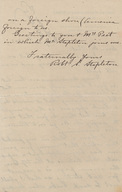 on a foreign shore
foreign to us.
Greetings to you & Mrs Post
in which Mrs Stapleton joins me
Fraternally Yours
Robt S. Stapleton